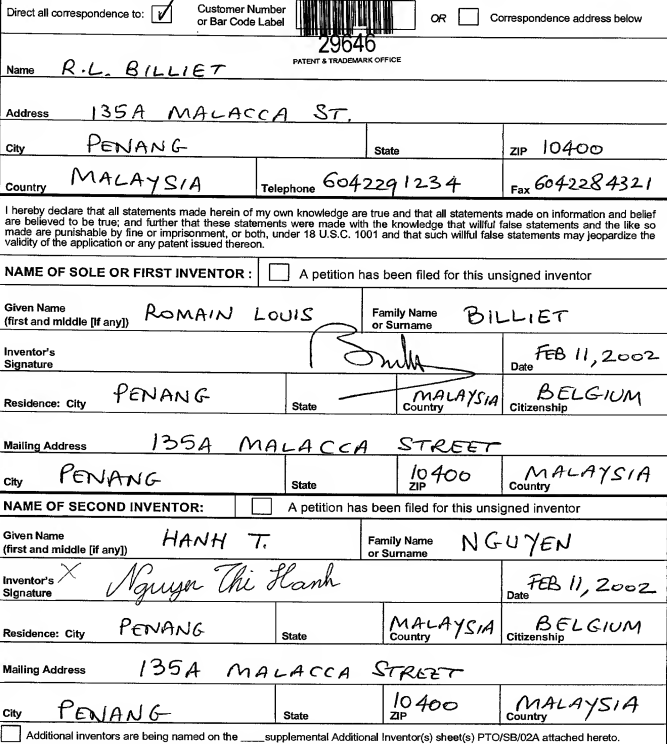 Direct all correspondence to: Customer Number or Bar Code Label OR Correspondence address below
29646
PATENT & TRADEMARK OFFICE
Name R.L. BILLIET
Address 135A MALACCA ST.
City PENANG State ZIP 10400
Country MALAYSIA Telephone 6042291234 Fax 6042284321
I hereby declare that all statements made herein of my own knowledge are true and that all statements made on information and belief
are believed to be true; and further that these statements were made with the knowledge that willful false statements and the like so
made are punishable by fine or imprisonment, or both, under 18 U.S.C. 1001 and that such willful false statements may jeopardize the
validity of the application or any patent issued thereon.
NAME OF SOLE OR FIRST INVENTOR : A petition has been filed for this unsigned inventor
Given Name (first and middle [if any]) ROMAIN LOUIS Family Name or Surname BILLIET
Inventor's Signature Date FEB 11, 2002
Residence: City PENANG State MALAYSIA Country BELGIUM Citizenship
Mailing Address 135A MALACCA STREET
City PENANG State 10400 ZIP MALAYSIA Country
NAME OF SECOND INVENTOR: A petition has been filed for this unsigned inventor
Given Name (first and middle [if any]) HANH T. Family Name or Surname NGUYEN
Inventor's Signature X Nguyen Thi Hanh Date FEB 11, 2002
Residence: City PENANG State MALAYSIA Country BELGIUM Citizenship
Mailing Address 135A MALACCA STREET
City PENANG State 10400 ZIP MALAYSIA Country
Additional inventors are being named on the ___supplemental Additional Inventor(s) sheet(s) PTO/SB/02A attached hereto.